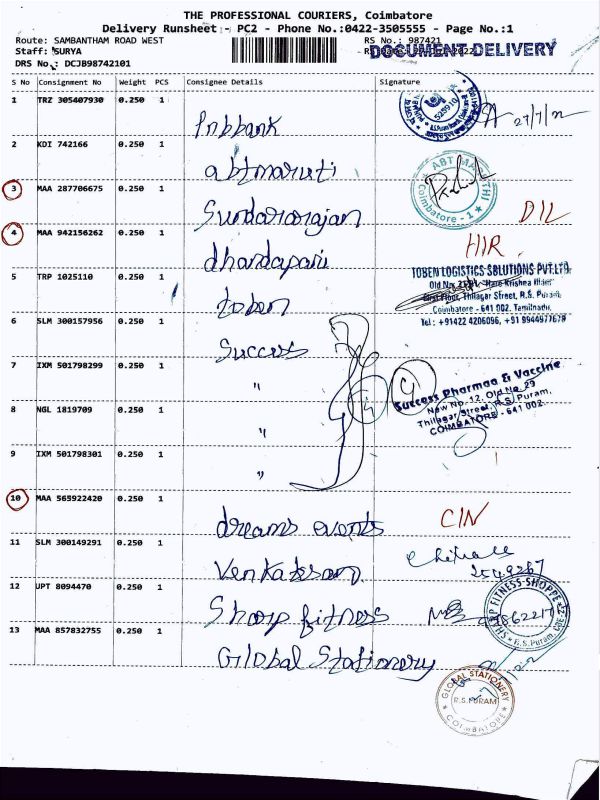 THE PROFESSIONAL COURIERS, Coimbatore
Delivery Runsheet - PC2 - Phone No.:0422-3505555 - Page No.:1
Route: SAMBANTHAM ROAD WEST RS No.: 987421
Staff: SURYA DOCUMENT DELIVERY
DRS No.: DCJB98742101
S No Consignment No Weight PCS Consignee Details Signature
1 TRZ 305407930 0.250 1 Pnbbank 27/7/22
2 KDI 742166 0.250 1 abtmaruti
ABT MARUTHI Coimbatore - 1
3 MAA 287706675 0.250 1 Sundararajan DIL
4 MAA 942156262 0.250 1 dhandapani HIR
5 TRP 1025110 0.250 1 toben
TOBEN LOGISTICS SOLUTIONS PVT.LTD.
Hare Krishna
First Floor, Thilagar Street, R.S. Puram,
Coimbatore - 641 002. Tamilnadu.
Tel : +91422 4206096, +91 9944977678
6 SLM 300157956 0.250 1 Success
7 IXM 501798299 0.250 1 "
Success Pharmaa & Vaccine
New No. 12, Old No. 29
Thilagar Street, R.S Puram,
COIMBATORE - 641 002.
8 NGL 1819709 0.250 1 "
9 IXM 501798301 0.250 1 "
10 MAA 565922420 0.250 1 dreams events CIN
11 SLM 300149291 0.250 1 Venkatesan
12 UPT 8094470 0.250 1 Sharp fitness
SHARP FITNESS-SHOPPE R.S.Puram,
13 MAA 857832755 0.250 1 Global Stationery
GLOBAL STATIONERY
R.S.PURAM
COIMBATORE